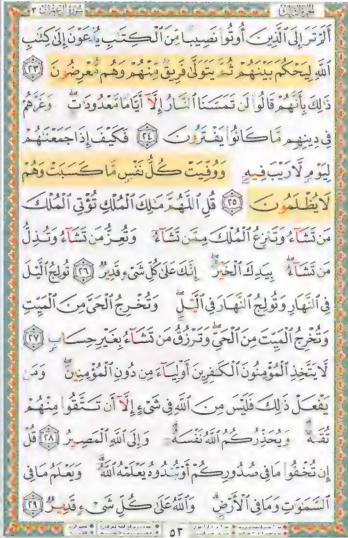 أَلَمْ تَرَ إِلَى ٱلَّذِينَ أُوتُوا۟ نَصِيبًا مِّنَ ٱلْكِتَٰبِ يُدْعَوْنَ إِلَىٰ كِتَٰبِ
ٱللَّهِ لِيَحْكُمَ بَيْنَهُمْ ثُمَّ يَتَوَلَّىٰ فَرِيقٌ مِّنْهُمْ وَهُم مُّعْرِضُونَ ٢٣
ذَٰلِكَ بِأَنَّهُمْ قَالُوا۟ لَن تَمَسَّنَا ٱلنَّارُ إِلَّآ أَيَّامًا مَّعْدُودَٰتٍ ۖ وَغَرَّهُمْ
فِى دِينِهِم مَّا كَانُوا۟ يَفْتَرُونَ ٢٤ فَكَيْفَ إِذَا جَمَعْنَٰهُمْ
لِيَوْمٍ لَّا رَيْبَ فِيهِ وَوُفِّيَتْ كُلُّ نَفْسٍ مَّا كَسَبَتْ وَهُمْ
لَا يُظْلَمُونَ ٢٥ قُلِ ٱللَّهُمَّ مَٰلِكَ ٱلْمُلْكِ تُؤْتِى ٱلْمُلْكَ
مَن تَشَآءُ وَتَنزِعُ ٱلْمُلْكَ مِمَّن تَشَآءُ وَتُعِزُّ مَن تَشَآءُ وَتُذِلُّ
مَن تَشَآءُ ۖ بِيَدِكَ ٱلْخَيْرُ ۖ إِنَّكَ عَلَىٰ كُلِّ شَىْءٍ قَدِيرٌ ٢٦ تُولِجُ ٱلَّيْلَ
فِى ٱلنَّهَارِ وَتُولِجُ ٱلنَّهَارَ فِى ٱلَّيْلِ ۖ وَتُخْرِجُ ٱلْحَىَّ مِنَ ٱلْمَيِّتِ
وَتُخْرِجُ ٱلْمَيِّتَ مِنَ ٱلْحَىِّ ۖ وَتَرْزُقُ مَن تَشَآءُ بِغَيْرِ حِسَابٍ ٢٧
لَّا يَتَّخِذِ ٱلْمُؤْمِنُونَ ٱلْكَٰفِرِينَ أَوْلِيَآءَ مِن دُونِ ٱلْمُؤْمِنِينَ ۖ وَمَن
يَفْعَلْ ذَٰلِكَ فَلَيْسَ مِنَ ٱللَّهِ فِى شَىْءٍ إِلَّآ أَن تَتَّقُوا۟ مِنْهُمْ
تُقَىٰةً ۗ وَيُحَذِّرُكُمُ ٱللَّهُ نَفْسَهُۥ ۗ وَإِلَى ٱللَّهِ ٱلْمَصِيرُ ٢٨ قُلْ
إِن تُخْفُوا۟ مَا فِى صُدُورِكُمْ أَوْ تُبْدُوهُ يَعْلَمْهُ ٱللَّهُ ۗ وَيَعْلَمُ مَا فِى
ٱلسَّمَٰوَٰتِ وَمَا فِى ٱلْأَرْضِ ۗ وَٱللَّهُ عَلَىٰ كُلِّ شَىْءٍ قَدِيرٌ ٢٩
٥٣